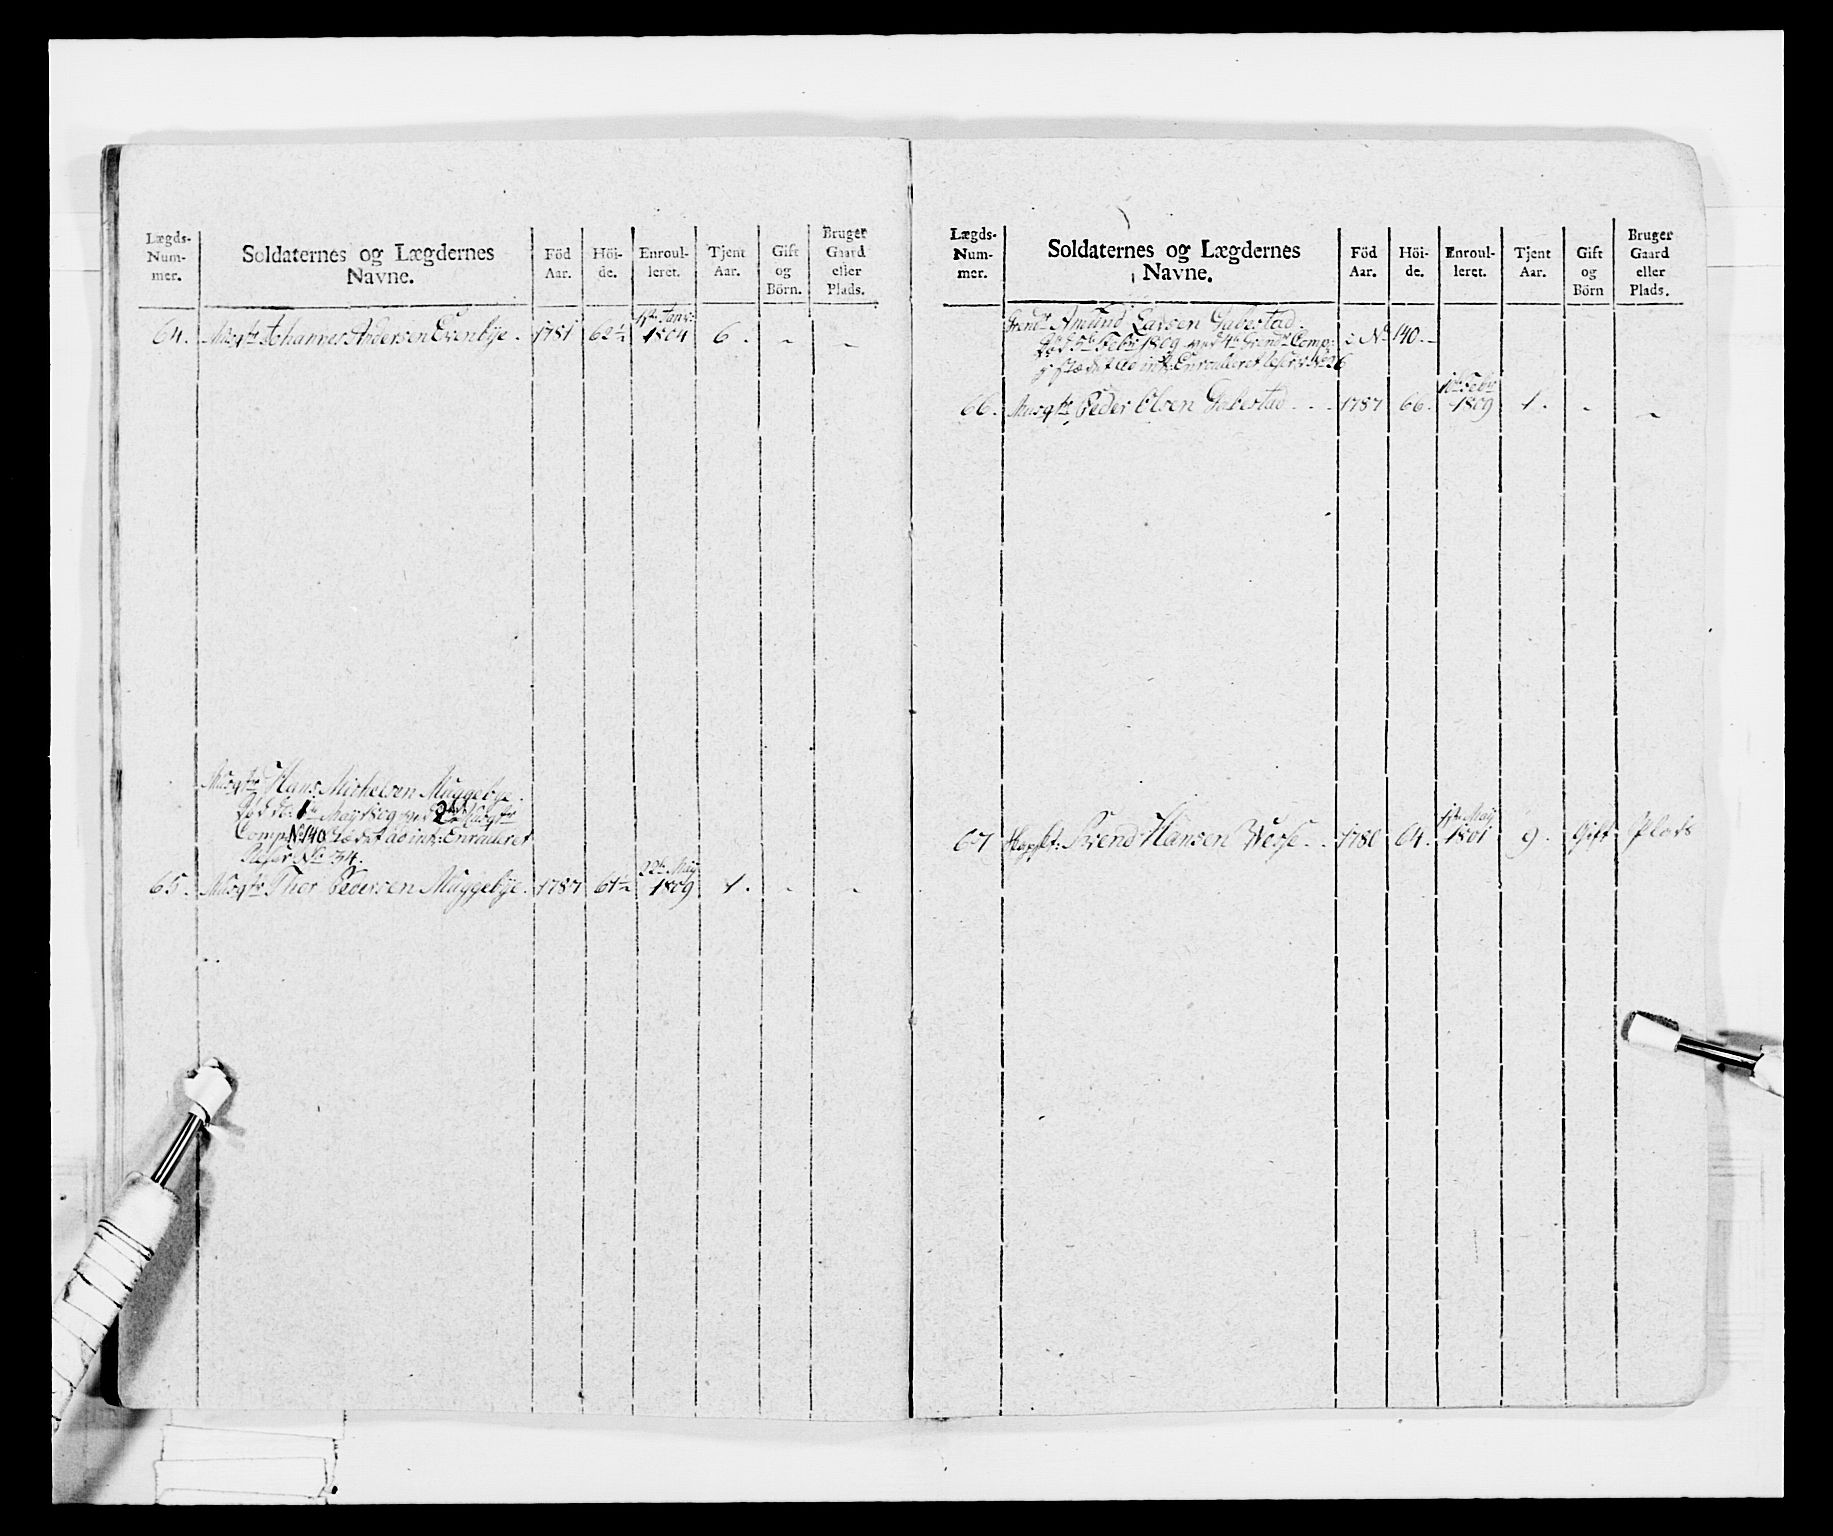 Lægds-
Num-
mer.
Soldaternes og Lægdernes
Navne.
Föd
Aar.
Höi-
de.
Enroul-
leret.
Tjent
Aar.
Gift
og
Börn.
Bruger
Gaard
eller
Plads.
64. Musqtr Johannes Andersen Evenbye. 1781 62½ 1te Janr: 1804 6. - -
Musqtr Hans Michelsen Muggebye.
död d: 1te May 1809 ved 2den Musqtr
Comp: No 140
Reserv No 34.
65. Musqtr Thor Pedersen Muggebye. 1787 61½ 22de May 1809 1. - -
Lægds-
Num-
mer.
Soldaternes og Lægdernes
Navne.
Föd
Aar.
Höi-
de.
Enroul-
leret.
Tjent
Aar.
Gift
og
Börn
Bruger
Gaard
eller
Plads.
Grendr Amund Larsen Gabestad.
död 5te Febr 1809 ved 4de Grendr Comp: No 140.
Enroulleret
66. Musqtr Peder Olsen Gabestad 1787 66. Febr 1809 1. - -
67 Svend Hansen 1780 64. 1te May 1801 9. Gift Plads